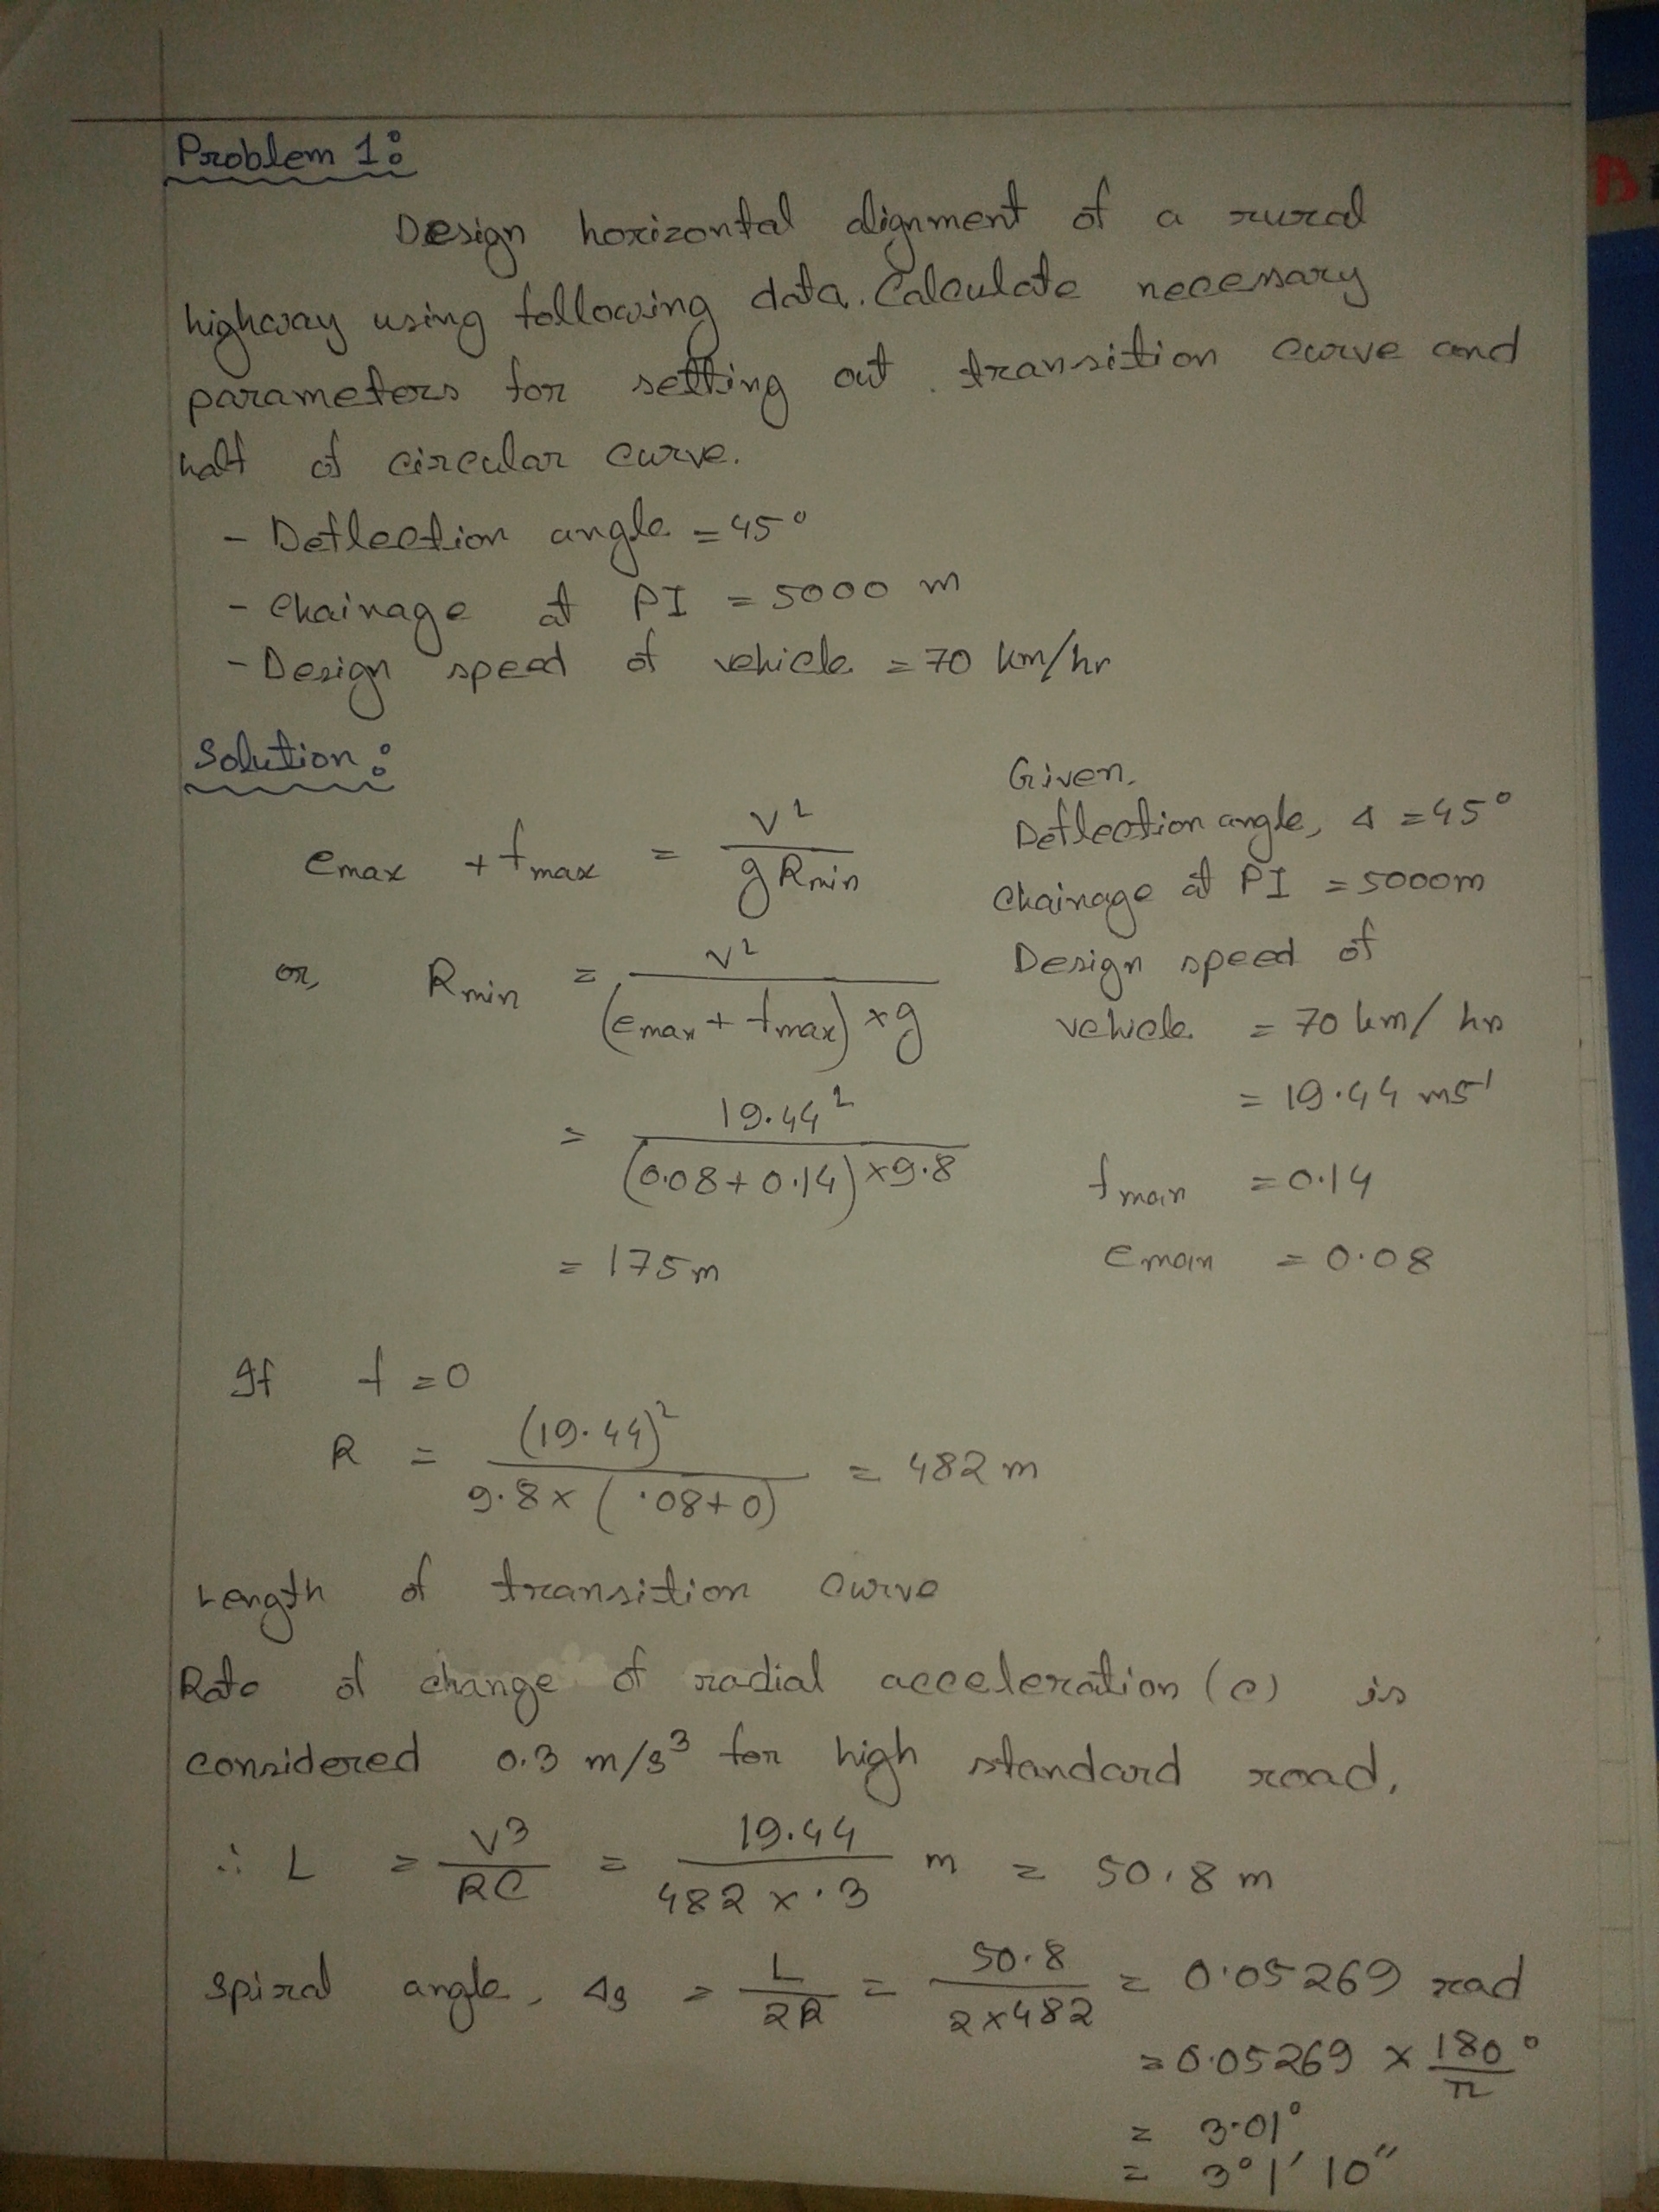 Problem 1:
Design horizontal alignment of a rural
highway using following data. Calculate necessary
parameters for setting out transition curve and
half of circular curve.
- Deflection angle = 45°
- Chainage at PI = 5000 m
- Design speed of vehicle = 70 km/hr
Solution:
e max + f max = V² / g Rmin
or, Rmin = V² / (emax + fmax) × g
= 19.44² / (0.08 + 0.14) × 9.8
= 175 m
Given,
Deflection angle, Δ = 45°
Chainage at PI = 5000m
Design speed of
vehicle = 70 km/hr
= 19.44 ms⁻¹
f max = 0.14
e max = 0.08
If f = 0
R = (19.44)² / 9.8 × (.08 + 0) = 482 m
Length of transition curve
Rate of change of radial acceleration (c) is
considered 0.3 m/s³ for high standard road.
∴ L = V³ / RC = 19.44 / 482 × .3 m = 50.8 m
Spiral angle, Δs = L / 2R = 50.8 / 2×482 = 0.05269 rad
= 0.05269 × 180° / π
= 3.01°
= 3° 1′ 10″
B